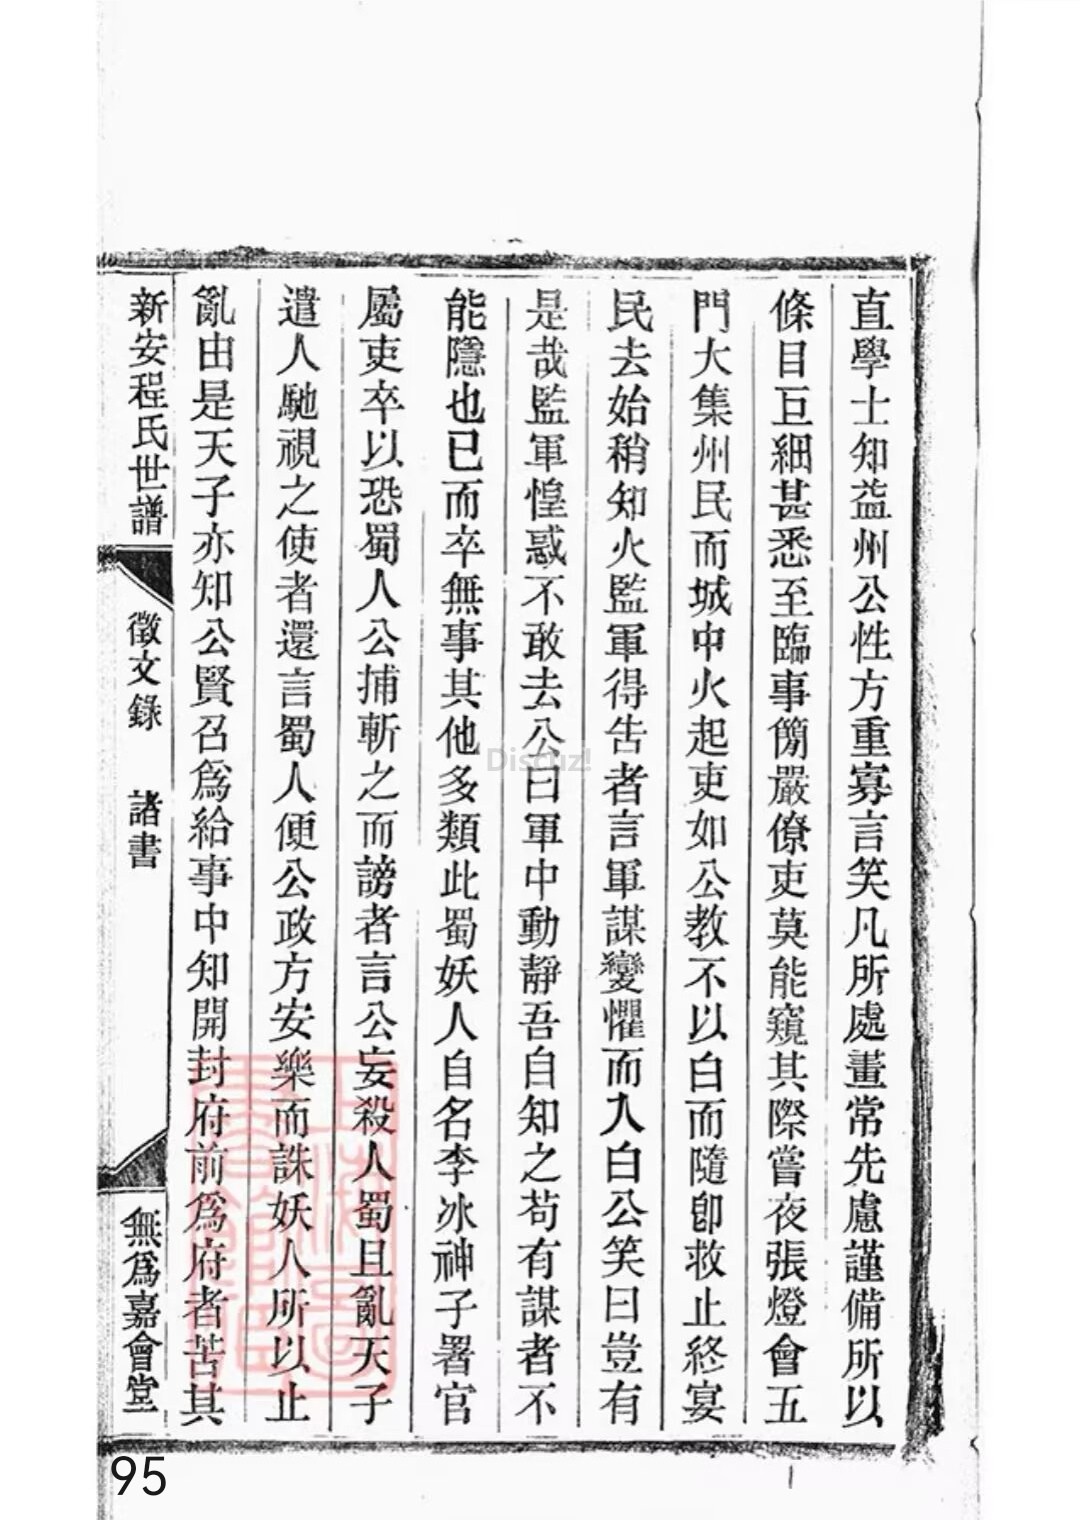 直學士知益州公性方重寡言笑凡所處畫常先慮謹備所以
條目巨細甚悉至臨事簡嚴僚吏莫能窺其際嘗夜張燈會五
門大集州民而城中火起吏如公教不以白而隨卽救止終宴
民去始稍知火監軍得告者言軍謀變懼而入白公笑曰豈有
是哉監軍惶惑不敢去公曰軍中動靜吾自知之苟有謀者不
能隱也已而卒無事其他多類此蜀妖人自名李冰神子署官
屬吏卒以恐蜀人公捕斬之而謗者言公妄殺人蜀且亂天子
遣人馳視之使者還言蜀人便公政方安樂而誅妖人所以止
亂由是天子亦知公賢召爲給事中知開封府前爲府者苦其
新安程氏世譜
徵文錄
諸書
無爲嘉會堂
Discuz!
95